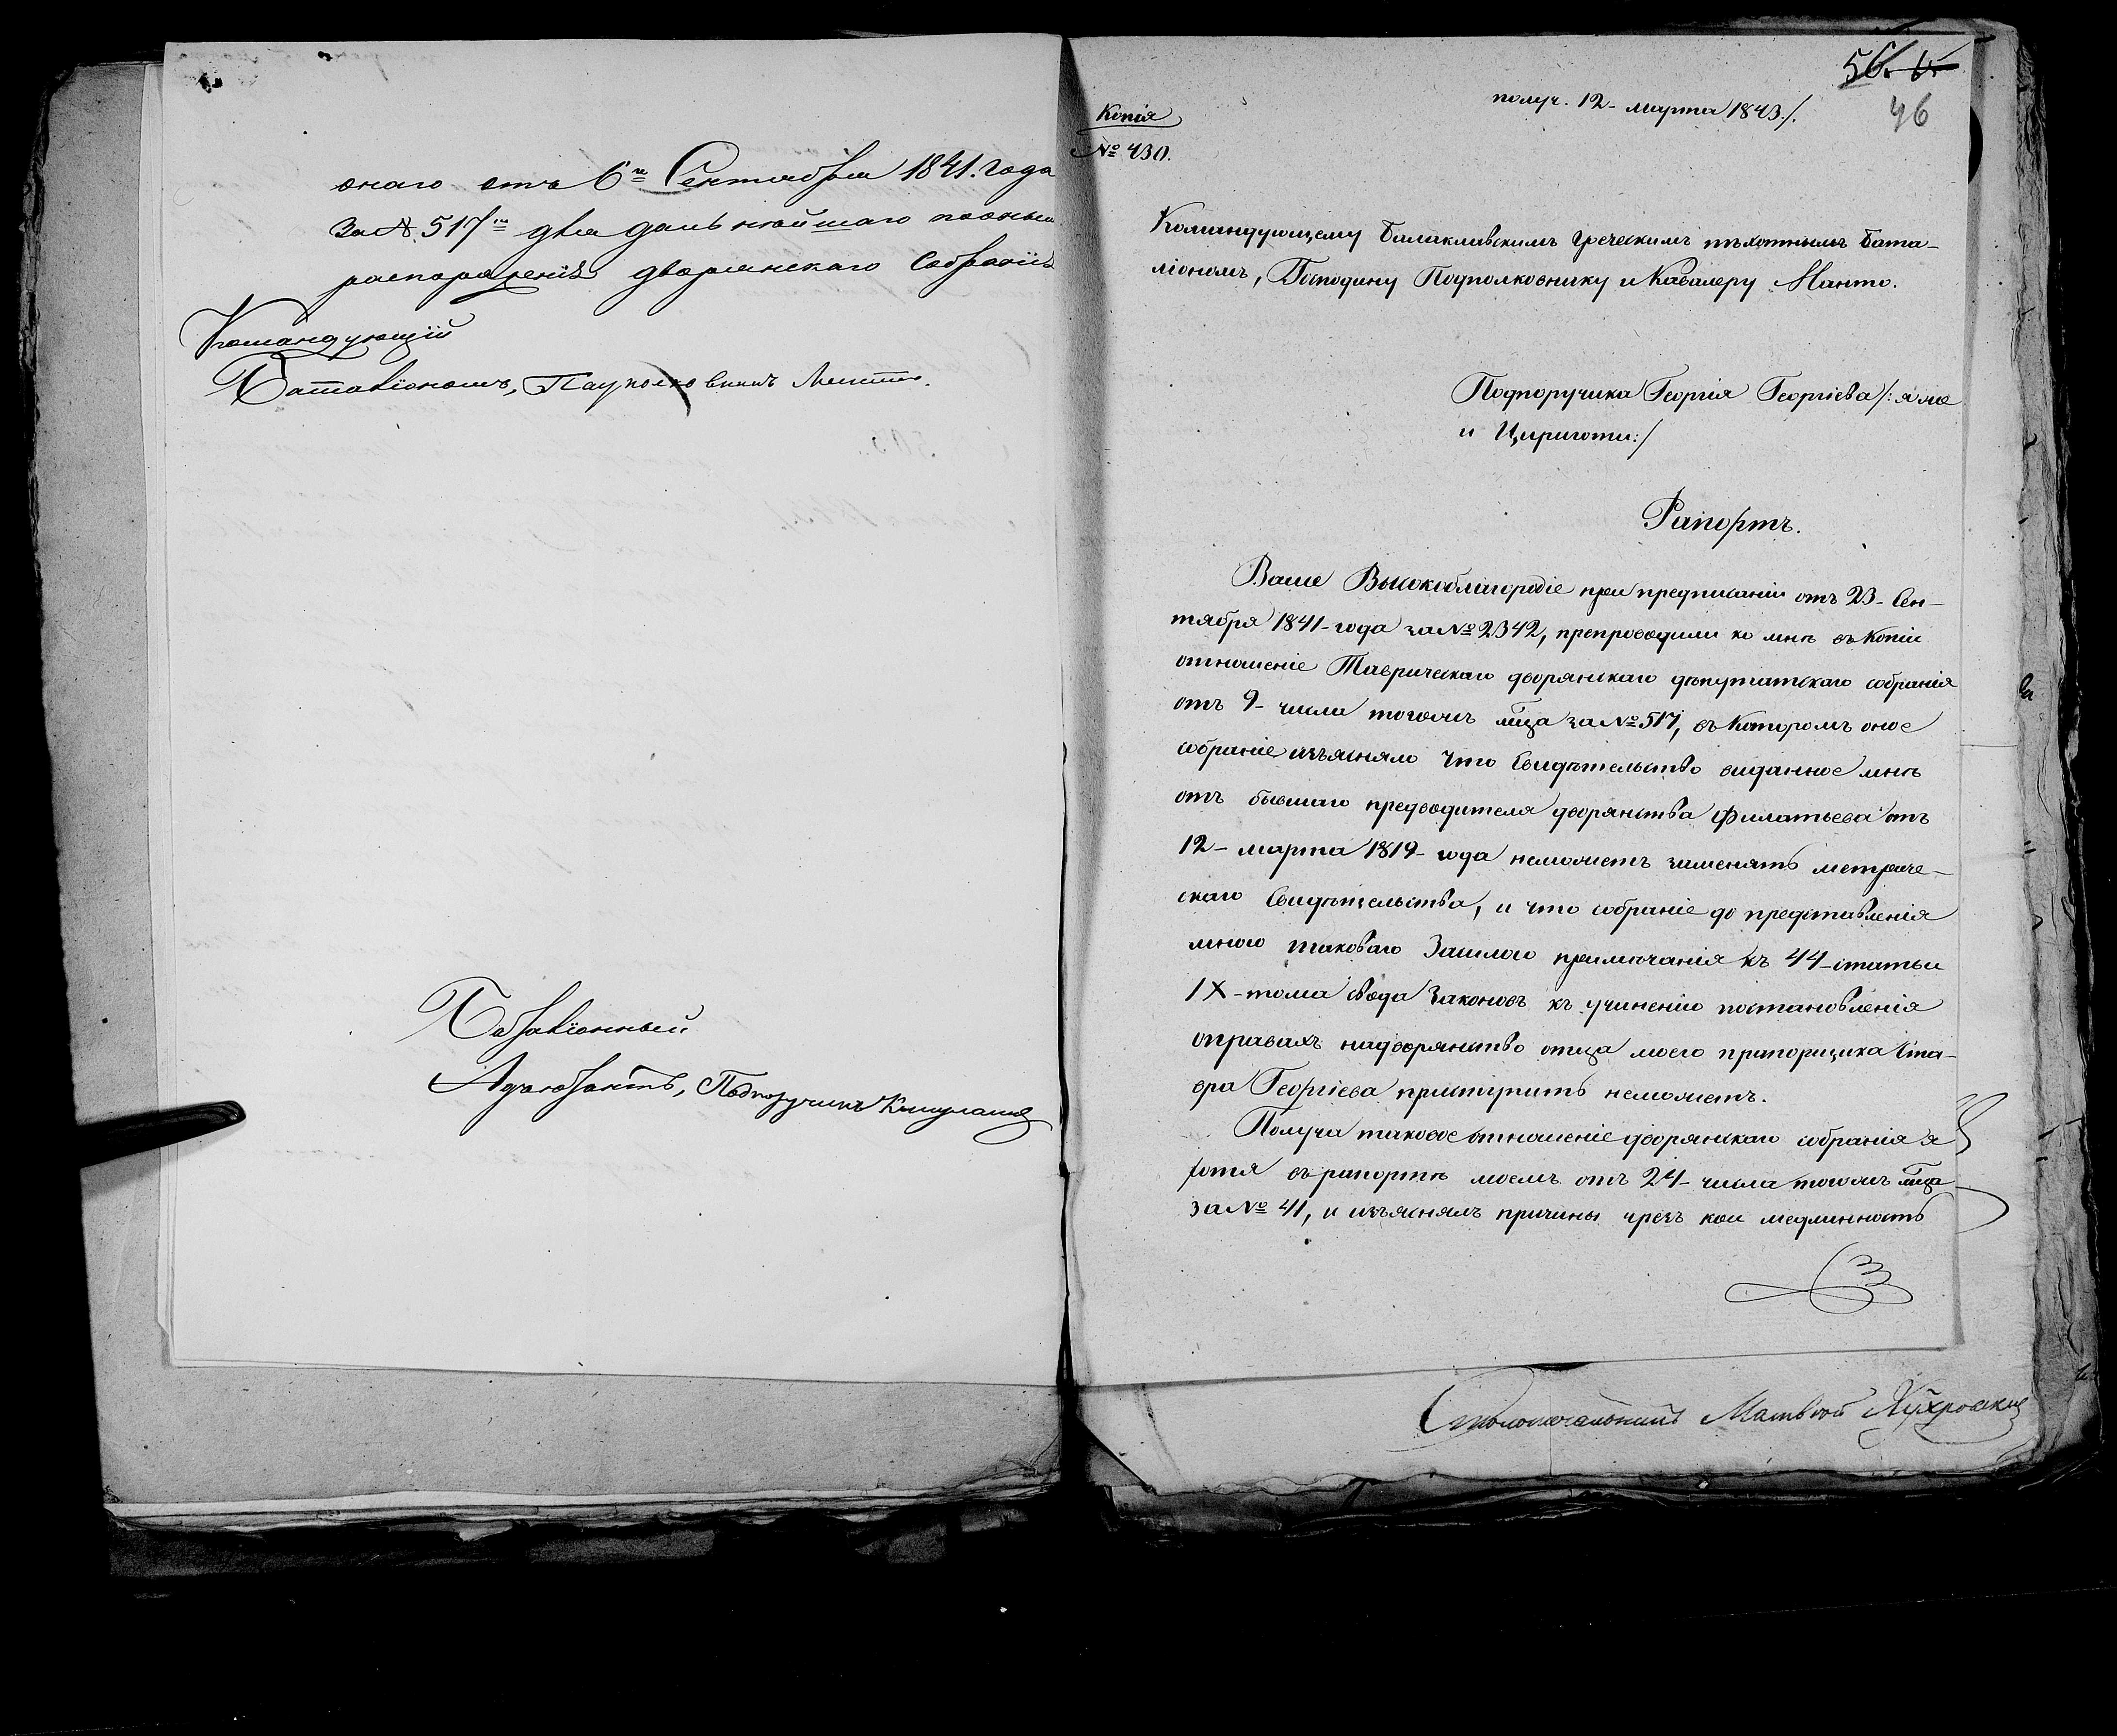 онаго отъ 6го Сентября 1841. года
За №. 517м для дальнѣйшаго по оным
распоряженія дворянскаго Собранія
Командующій
Баталіономъ, Подполковникъ Манто.
Баталіонный
Адъютантъ, Подпоручикъ
56.
46
получ. 12 - марта 1843 /.
Копія
№ 430.
Командующему Балаклавскимъ Греческимъ пѣхотнымъ бата-
ліономъ, Господину Подполковнику и Кавалеру Манто.
Подпоручика Георгія Георгіева /: яже
и Цириготи :/
Рапортъ.
Ваше Высокоблагородіе при предписаніи отъ 23 - Сен-
тября 1841 - года за № 2342, препроводили ко мнѣ въ Копіи
отношеніе Таврическаго дворянскаго дѣпутатскаго собранія
отъ 9 - числа тогожъ мца за № 517, въ Которомъ оное
собраніе изъясняло что Свидѣтельство виданное мнѣ
отъ бывшаго предводителя дворянства Филатьева отъ
12 - марта 1819 - года неможетъ заменять метриче-
скаго Свидѣтельства, и что собраніе до представленія
мною таковаго Засилою примѣчанія къ 44 - статьи
IX - тома свода Законовъ къ учиненію постановленія
оправахъ надворянство отца моего прапорщика Ста-
вра Георгіева приступить неможетъ.
Получа таковое отношеніе дворянскаго собранія я
хотя въ рапортѣ моемъ отъ 24 - числа тогожъ мца
за № 41, и изъяснялъ причины чрезъ кои медлинность
Столоначальникъ Матвѣй